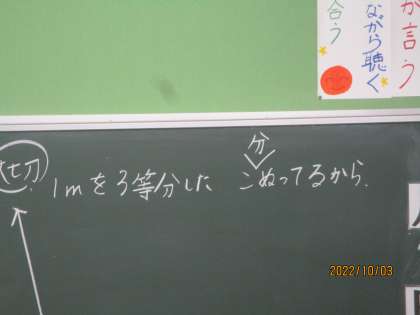 が言う
ながら聴く
合う
分
切 1mを3等分した こぬってるから.
2022/10/03